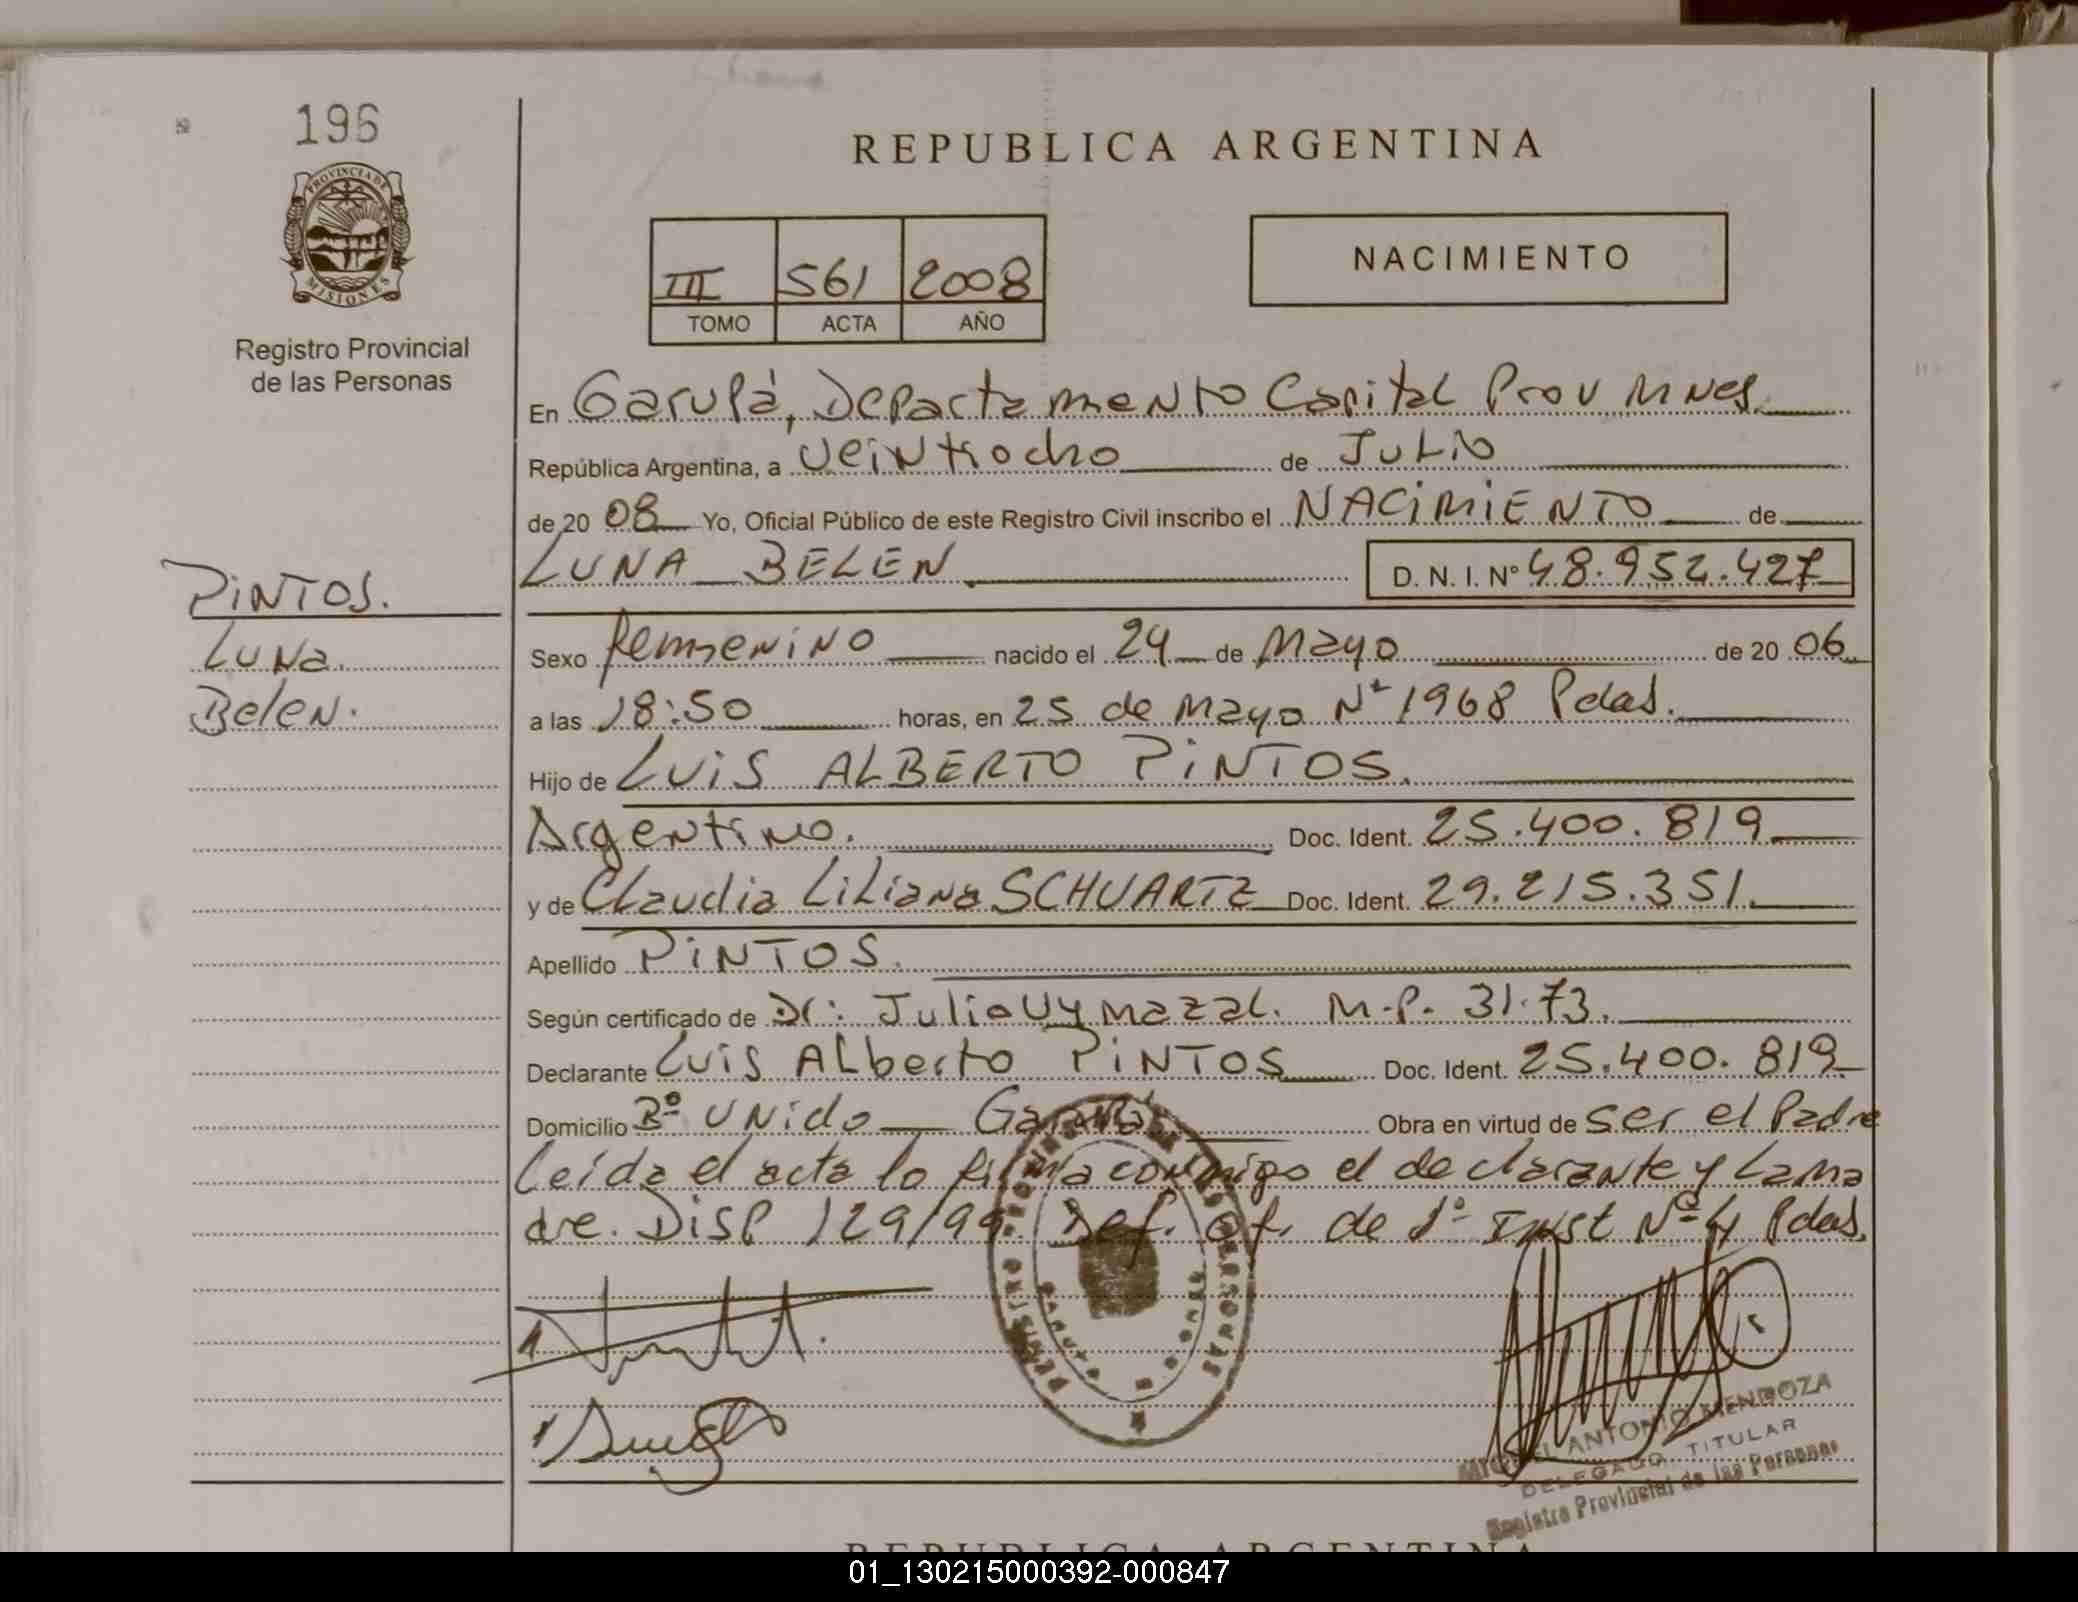 196
PROVINCIA DE
MISIONES
Registro Provincial
de las Personas
PINTOS.
Luna
Belen.
REPUBLICA ARGENTINA
III 561 2008
TOMO ACTA AÑO
NACIMIENTO
En Garupá, Departamento Capital Prov Mnes.
República Argentina, a veintiocho de Julio
de 20 08 Yo, Oficial Público de este Registro Civil inscribo el NACIMIENTO de
LUNA BELEN D. N. I. Nº 48.952.427
Sexo femenino nacido el 24 de Mayo de 20 06
a las 18:50 horas, en 25 de Mayo Nº 1968 Pdas.
Hijo de LUIS ALBERTO PINTOS.
Argentino. Doc. Ident. 25.400.819
y de Claudia Liliana SCHUARTZ Doc. Ident. 29.215.351.
Apellido PINTOS.
Según certificado de Dr: Julio Uymazal. M.P. 31.73.
Declarante Luis Alberto PINTOS Doc. Ident. 25.400.819
Domicilio Bº Unido Garupá Obra en virtud de ser el Padre
Leída el acta lo firma conmigo el declarante y La ma
dre. Disp 129/99 Def. of. de 1º Inst Nº 4 Pdas.
ANTONIO MENDOZA
DELEGADO TITULAR
Registro Provincial de las Personas
REPUBLICA ARGENTINA
01_130215000392-000847